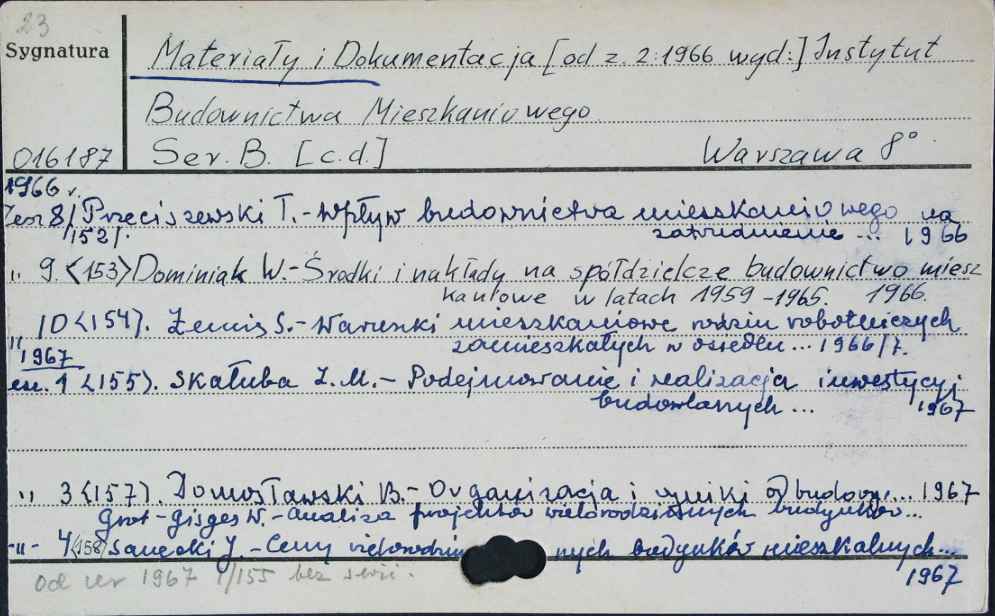 23
Sygnatura
Materiały i Dokumentacja [od z. 2:1966 wyd:] Instytut
Budownictwa Mieszkaniowego
016187 Ser. B. [c.d.] Warszawa 8°
1966 r.
Zesz 8/ Przeciszewski T. - Wpływ budownictwa mieszkaniowego na
/152/. zatrudnienie ... 1966
" 9. <153> Dominiak W. - Środki i nakłady na spółdzielcze budownictwo miesz
kaniowe w latach 1959-1965. 1966.
" 10 <154>. S. - Warunki mieszkaniowe rodzin robotniczych
zamieszkałych w osiedlu ... 1966/7.
1967
1 <155>. Skałuba Z. M. - Podejmowanie i realizacja inwestycyj
budowlanych ... 1967
" 3 <157>. Domosławski B. - Organizacja i wyniki odbudowy... 1967
W. - analiza projektów wielorodzinnych budynków...
-"- 4 <158> J. - Ceny nych budynków mieszkalnych...
od nr 1967 1/155 bez serii. 1967